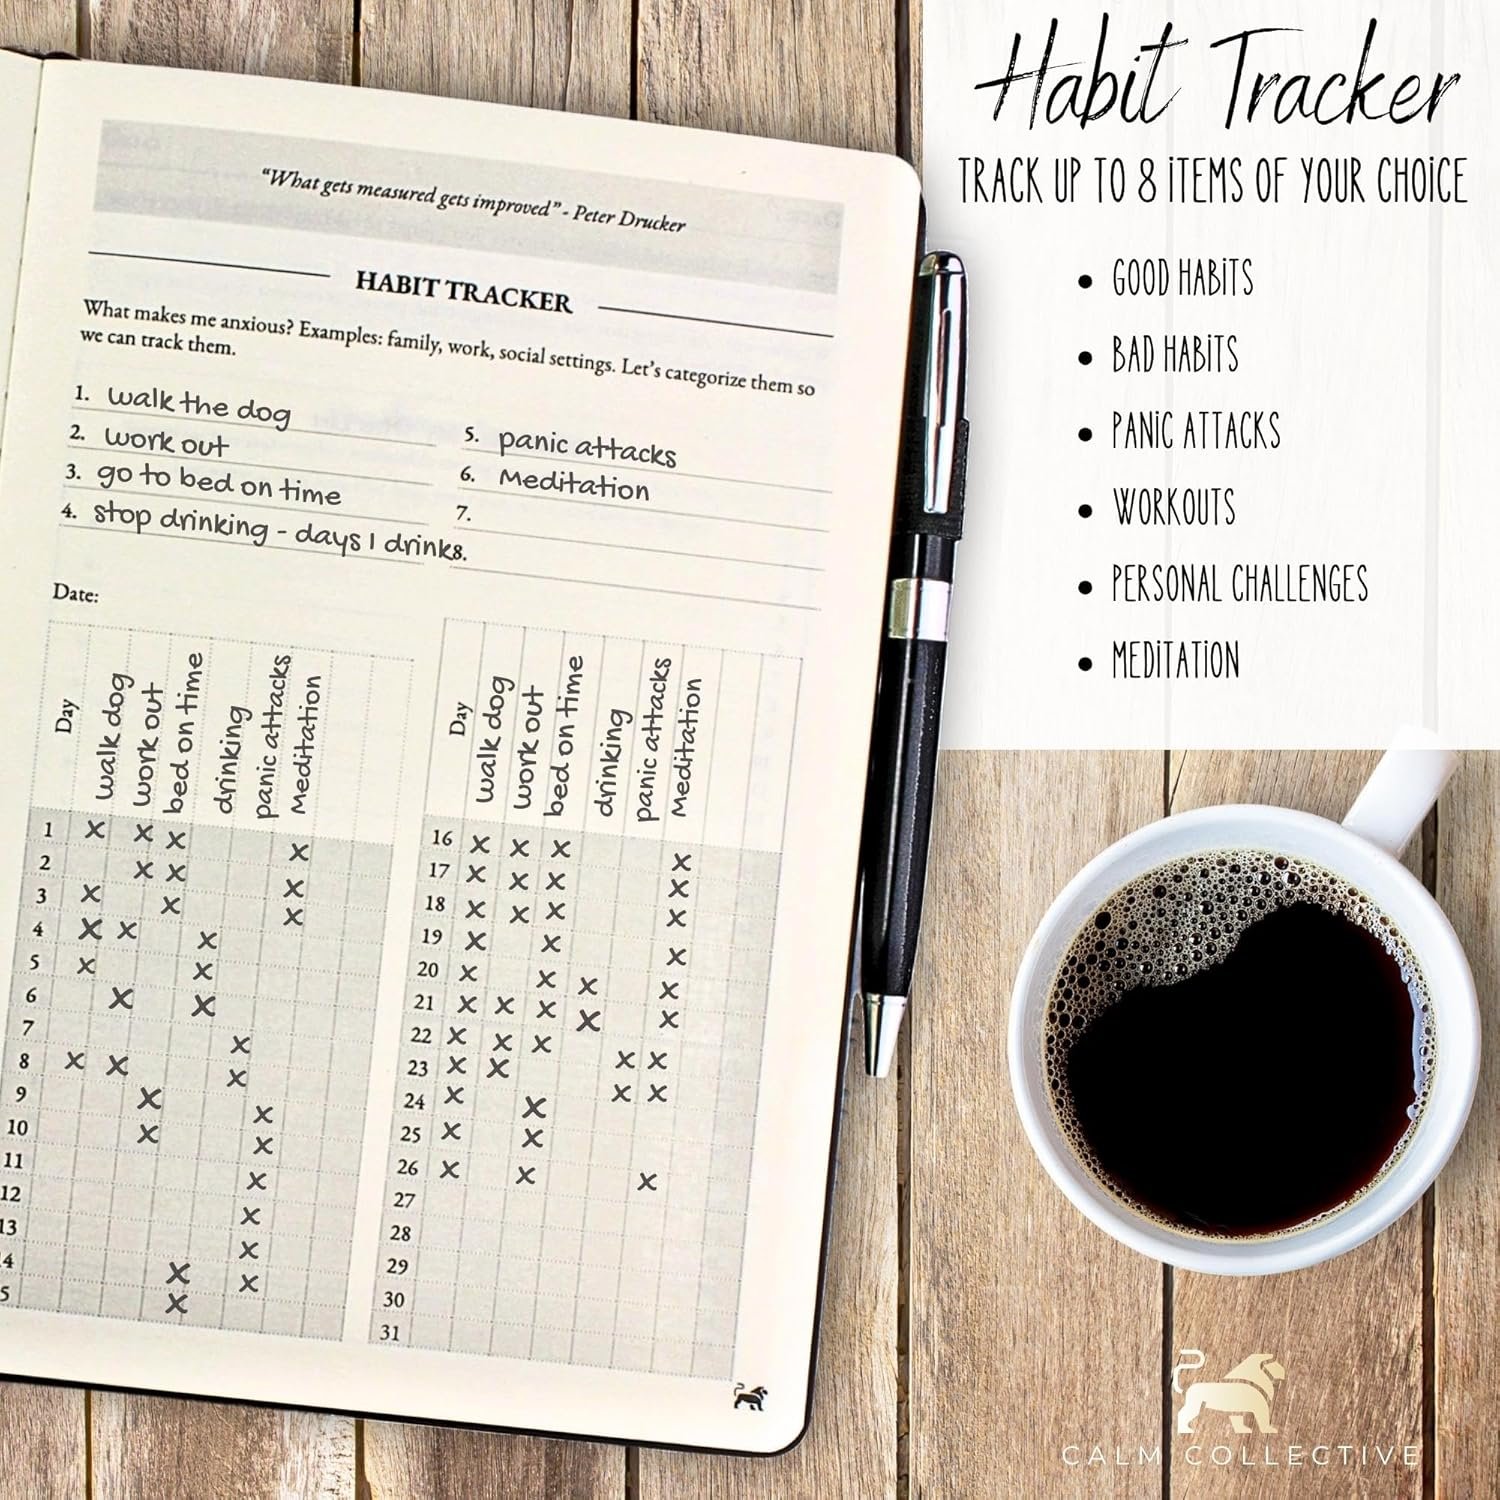 "What gets measured gets improved" - Peter Drucker
HABIT TRACKER
What makes me anxious? Examples: family, work, social settings. Let's categorize them so
we can track them.
1. walk the dog
2. work out
3. go to bed on time
4. stop drinking - days I drink
5. panic attacks
6. Meditation
7.
8.
Date:
Day walk dog work out bed on time drinking panic attacks Meditation
1 x x x x
2 x x x
3 x x x
4 x x x
5 x x
6 x x
7 x
8 x x x
9 x x
10 x x
11 x
12 x
13 x
4 x x
5 x
Day walk dog work out bed on time drinking panic attacks Meditation
16 x x x x
17 x x x x
18 x x x x
19 x x x
20 x x x x
21 x x x x x
22 x x x x x
23 x x x x
24 x x
25 x x
26 x x x
27
28
29
30
31
Habit Tracker
TRACK UP TO 8 iTEMS OF YOUR CHOiCE
• GOOD HABiTS
• BAD HABiTS
• PANiC ATTACKS
• WORKOUTS
• PERSONAL CHALLENGES
• MEDiTATiON
CALM COLLECTIVE